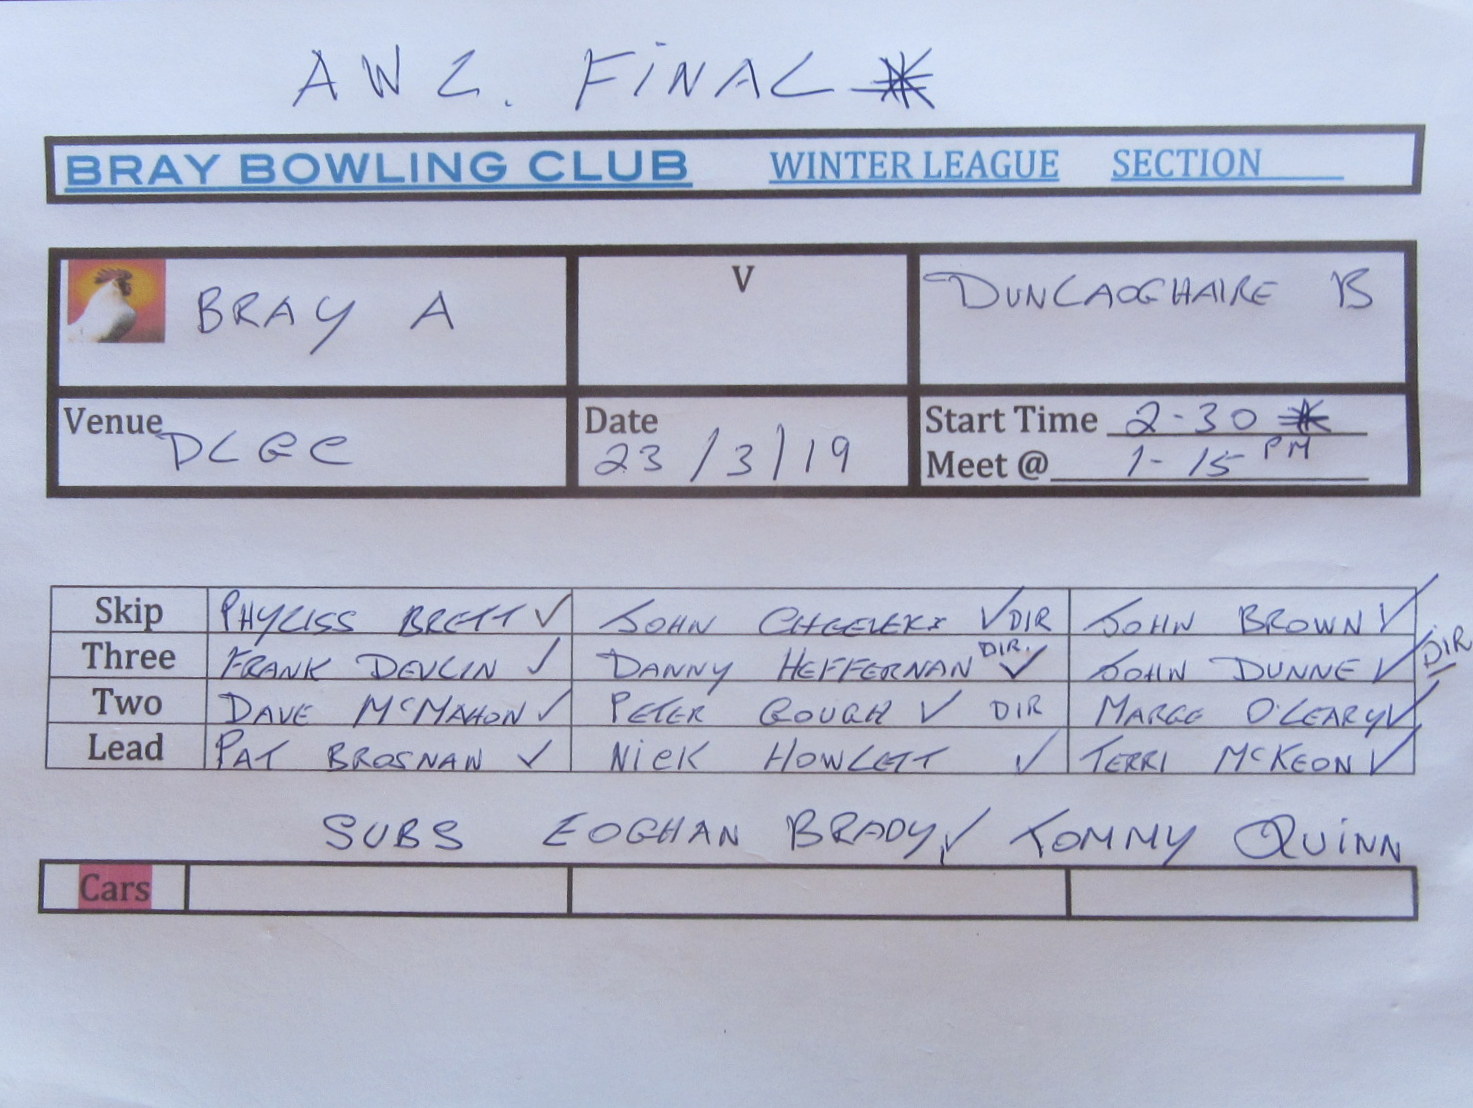 AWL. FINAL *
BRAY BOWLING CLUB WINTER LEAGUE SECTION
BRAY A V DUNLAOGHAIRE B
Venue DLGC Date 23/3/19 Start Time 2-30 *
Meet @ 1-15 PM
Skip PHYLISS BRETT ✓ JOHN ✓ DIR JOHN BROWN ✓
Three FRANK DEVLIN ✓ DANNY HEFFERNAN DIR. ✓ JOHN DUNNE ✓ DIR
Two DAVE McMAHON ✓ PETER GOUGH ✓ DIR MARGE O'LEARY ✓
Lead PAT BROSNAN ✓ NICK HOWLETT ✓ TERRI McKEON ✓
SUBS EOGHAN BRADY, ✓ TOMMY QUINN
Cars